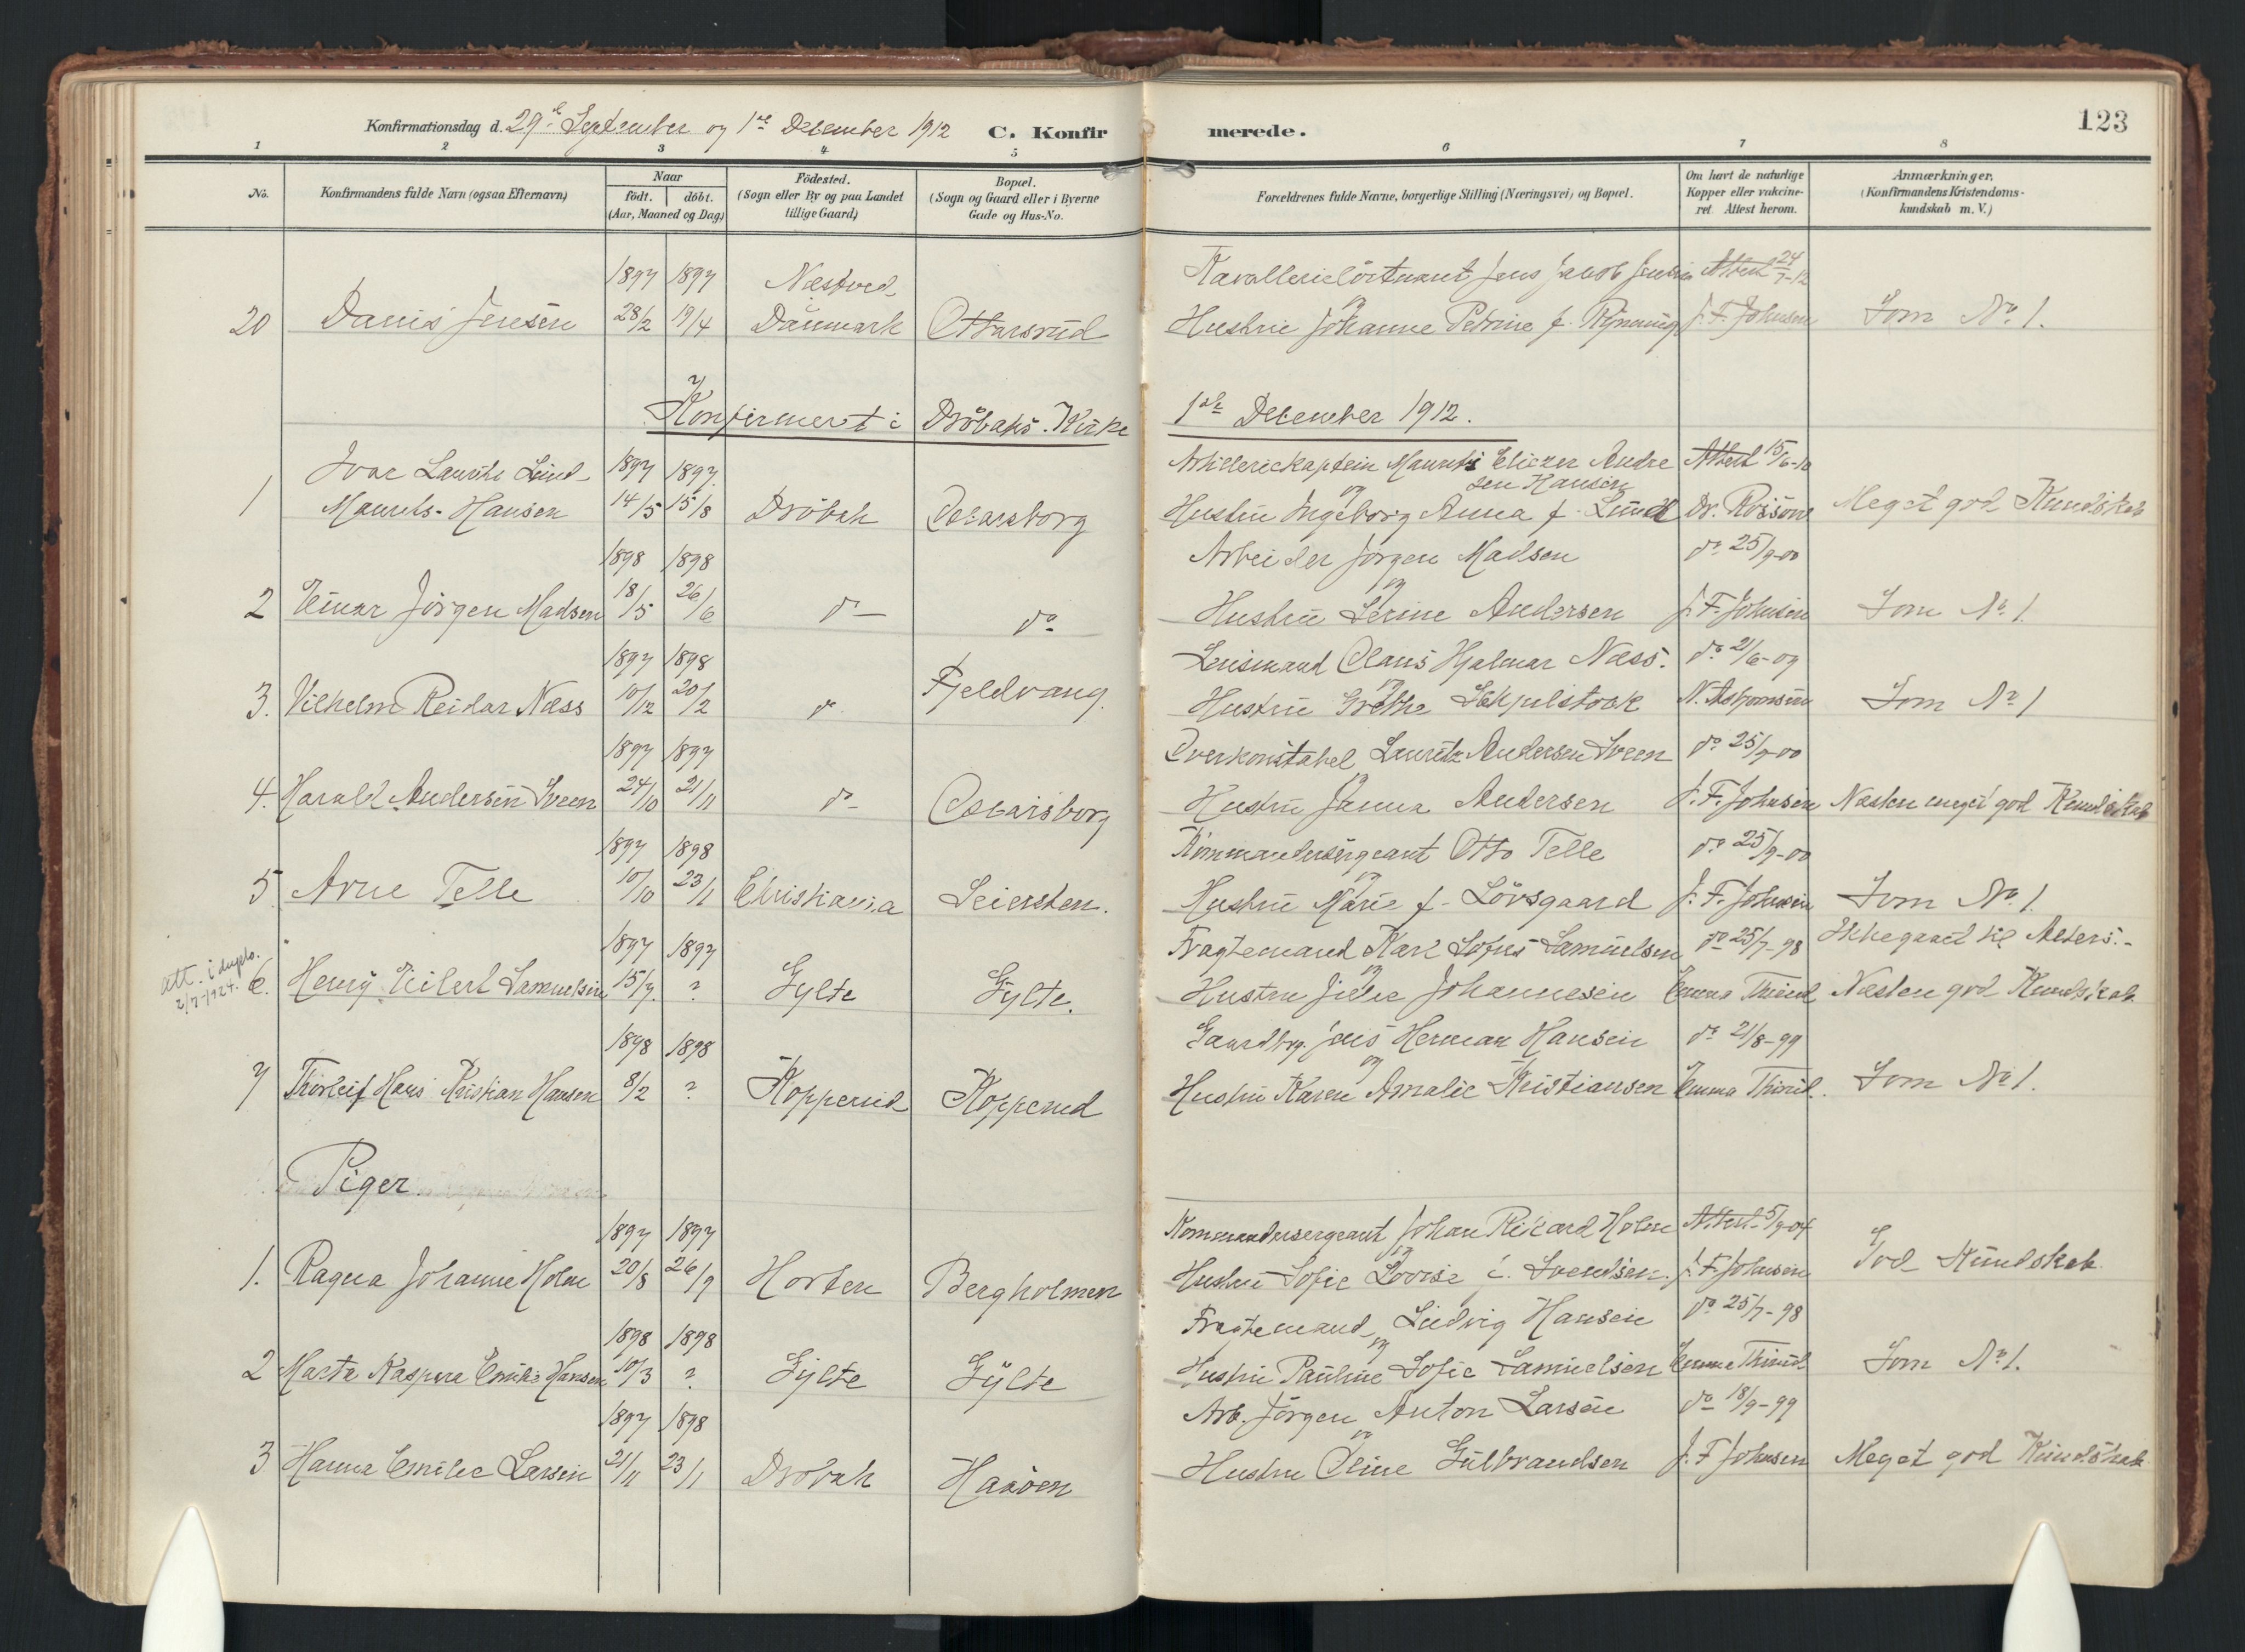 Konfirmationsdag d. 29de September og 1ste December 1912 C. Konfirmerede. 123
1 2 3 4 5 6 7 8
No. Konfirmandens fulde Navn (ogsaa Efternavn) Naar födt. döbt. (Aar, Maaned og Dag) Födested. (Sogn eller By og paa Landet tillige Gaard) Bopæl. (Sogn og Gaard eller i Byerne Gade og Hus-No. Forældrenes fulde Navne, borgerlige Stilling (Næringsvei) og Bopæl. Om havt de naturlige Kopper eller vakcineret Attest herom. Anmærkninger. (Konfirmandens Kristendomskundskab m. V.)
1897 1897 Næstved Kavallerielöitnant Jens Jacob Jensen Attest 24/7-12
20 Danis Jensen 28/2 19/4 Danmark Ottarsrud og Hustru Johanne Petrine f. Rynning J. F. Johnsen Som No 1.
Konfirmert i Dröbaks Kirke 1ste December 1912.
Ivar Laurits Lund- 1897 1897 Artillerikaptein Maurits Eliezer Andresen Hansen Attest 15/6-10
1 Maurits-Hansen 14/5 15/8 Dröbak Oscarsborg og Hustru Ingeborg Anna f. Lund Dr. Meget god Kundskab
1898 1898 Arbeider Jörgen Madsen do 25/9-00
2 Einar Jörgen Madsen 18/5 26/6 do do og Hustru Serine Andersen J. F. Johnsen Som No 1
1897 1898 Lensmand Olaus Hjalmar Næss. do 21/6-09
3. Vilhelm Reidar Næss 10/12 20/2 do Fjeldvang. og Hustru Grethe N. Asbjørnsen Som No 1
1897 1897 Overkonstabel Lauritz Andersen Sveen do 25/9-00
4. Harald Andersen Sveen 24/10 21/11 do Oscarsborg og Hustru Janna Andersen J. F. Johnsen Næsten meget god Kundskab
1897 1898 Kommandersergeant Otto Telle do 25/9-00
5 Arne Telle 10/10 23/1 Christiania Seiersten. og Hustru Marie f. Lövsgaard J. F. Johnsen Som No 1.
1897 1897 Fragtemand Karl Sofus Samuelsen do 25/7-98 Ikke gaaet til Alters.-
att. i duplo. 2/7-1924. 6. Henry Eilert Samuelsen 15/7. ? Gylte Gylte. og Hustru Johannesen Emma Næsten god Kundskab
1898 1898 Gaardbrg. Jens Herman Hansen do 21/8-99
7 Thorleif Hans Kristian Hansen 8/2 ? Kopperud Kopperud og Hustru Karen Amalie Kristiansen Emma Som No 1.
Piger
1897 1897 Kommandersergeant Johan Rikard Holm Attest 5/9-04
1. Ragna Johanne Holm 20/8 26/9 Horten Bergholmen og Hustru Sofie Lovise f. Svendsen. J. F. Johnsen God Kundskab
1898 1898 Fragtemand Ludvig Hansen do 25/7-98
2 Marta Kaspara Emilie Hansen 10/3 ? Gylte Gylte og Hustru Pauline Sofie Samuelsen Emma Som No 1.
1897 1898 Arb. Jörgen Anton Larsen do 18/9-99
3 Hanna Emilie Larsen 21/11 23/1 Dröbak Haaöen og Hustru Oline Gulbrandsen J. F. Johnsen Meget god Kundskab